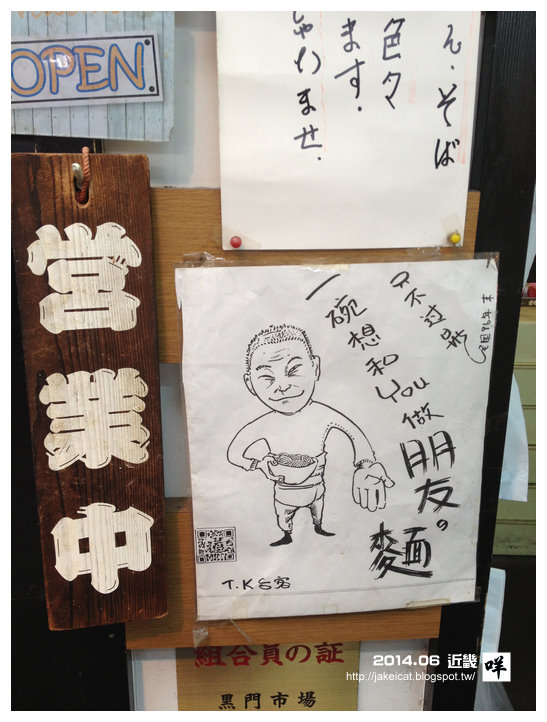 OPEN
営業中
ん、そば
色々
ます。
しゃわませ、
只不过是
一碗想和You做
朋友の
麵
T.K台客
組合員の証
黒門市場
2014.06 近畿 咩
http://jakeicat.blogspot.tw/